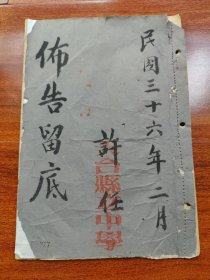 民国三十六年二月
許任
佈告留底
縣中學